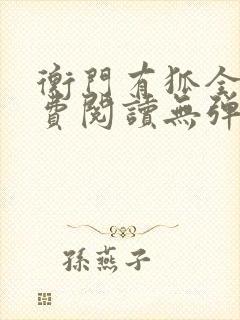 衡門有狐全
費閱讀無彈
孫燕子